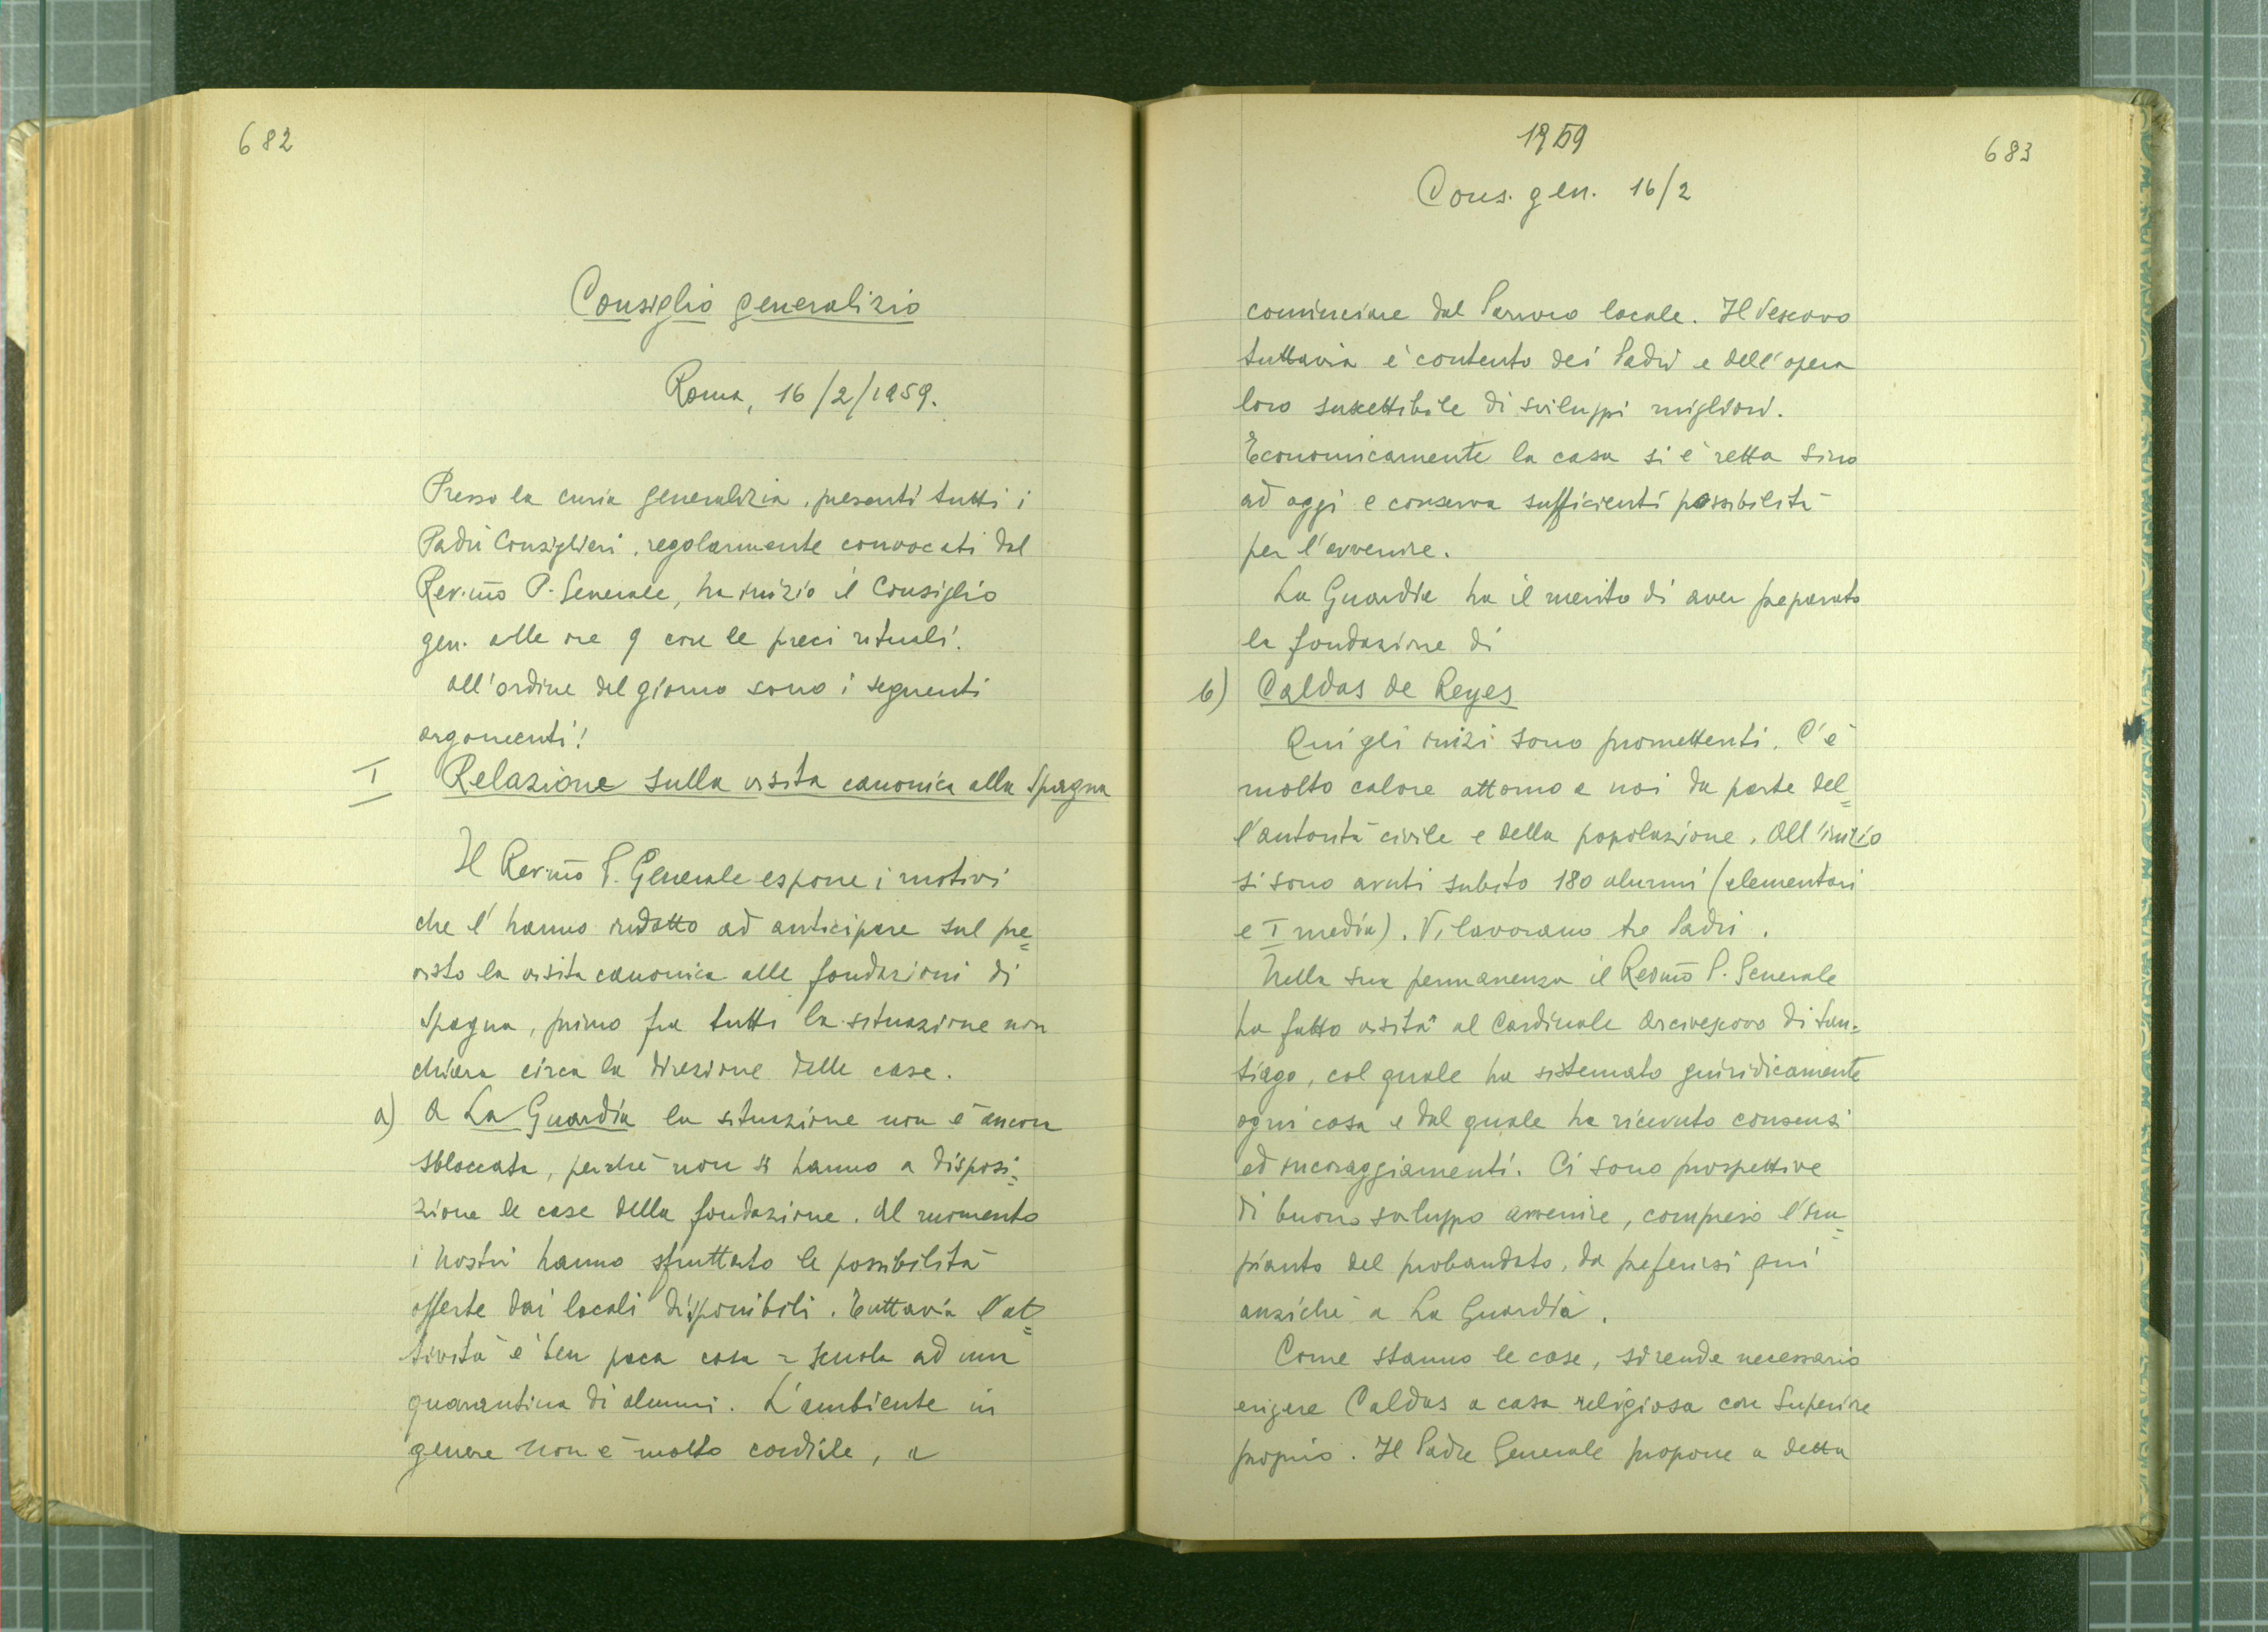 682
Consiglio generalizio
Roma, 16/2/1959.
Presso la curia generalizia, presenti tutti i
Padri Consiglieri, regolarmente convocati dal
Rev.mo P. Generale, ha inizio il Consiglio
gen. alle ore 9 con le preci rituali.
All'ordine del giorno sono i seguenti
argomenti:
I Relazione sulla visita canonica alla Spagna
Il Rev.mo P. Generale espone i motivi
che l'hanno indotto ad anticipare sul pre=
visto la visita canonica alle fondazioni di
Spagna, primo fra tutti la situazione non
chiara circa la direzione delle case.
a) A La Guardia la situazione non è ancora
sbloccata, perchè non si hanno a disposi=
zione le case della fondazione. Al momento
i Nostri hanno sfruttato le possibilità
offerte dai locali disponibili. Tuttavia l'at=
tività è ben poca cosa = scuola ad una
quarantina di alunni. L'ambiente in
genere non è molto cordiale, a
1959
683
Cons. gen. 16/2
cominciare dal Parroco locale. Il Vescovo
tuttavia è contento dei Padri e dell'opera
loro suscettibile di sviluppi migliori.
Economicamente la casa si è retta sino
ad oggi e conserva sufficienti possibilità
per l'avvenire.
La Guardia ha il merito di aver preparato
la fondazione di
b) Caldas de Reyes
Qui gli inizi sono promettenti. C'è
molto calore attorno a noi da parte del=
l'autorità civile e della popolazione. All'inizio
si sono avuti subito 180 alunni (elementari
e I media). Vi lavorano tre Padri.
Nella sua permanenza il Rev.mo P. Generale
ha fatto visita al Cardinale Arcivescovo di San=
tiago, col quale ha sistemato giuridicamente
ogni cosa e dal quale ha ricevuto consensi
ed incoraggiamenti. Ci sono prospettive
di buono sviluppo avvenire, compreso l'im=
pianto del probandato, da preferirsi qui
anzichè a La Guardia.
Come stanno le cose, si rende necessario
erigere Caldas a casa religiosa con Superiore
proprio. Il Padre Generale propone a detta